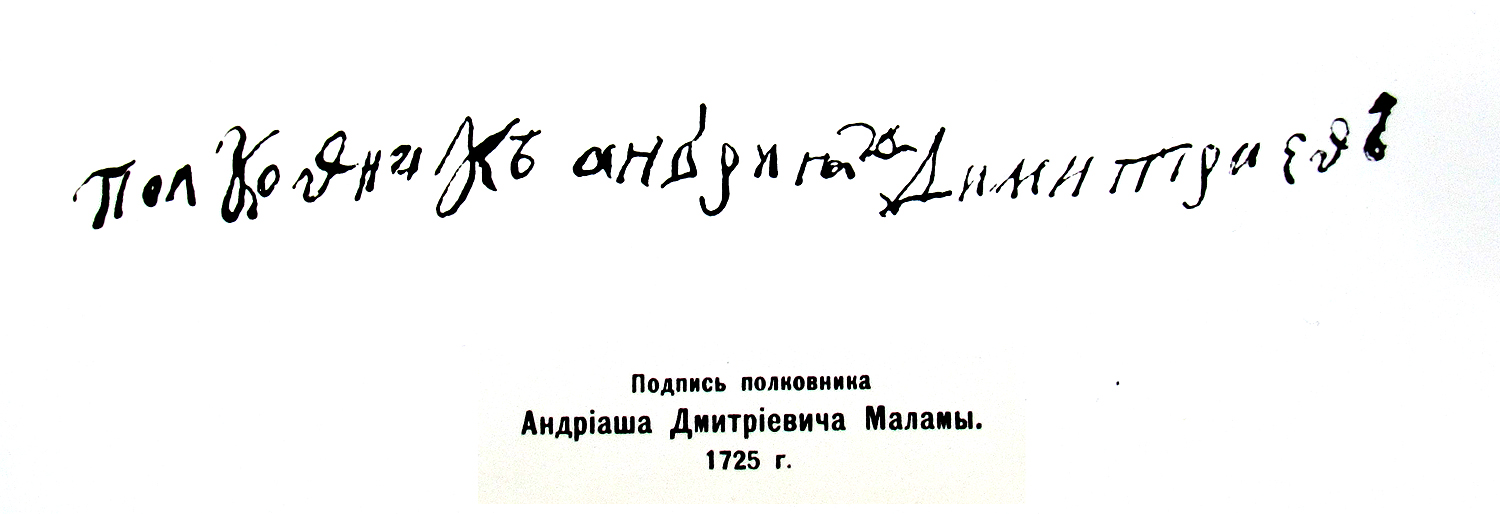 полковникъ Димитриевъ
Подпись полковника
Андріаша Дмитріевича Маламы.
1725 г.